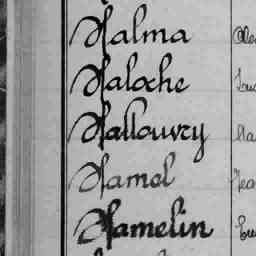 Halma
Haloche
Hallouvry
Hamel
Hamelin